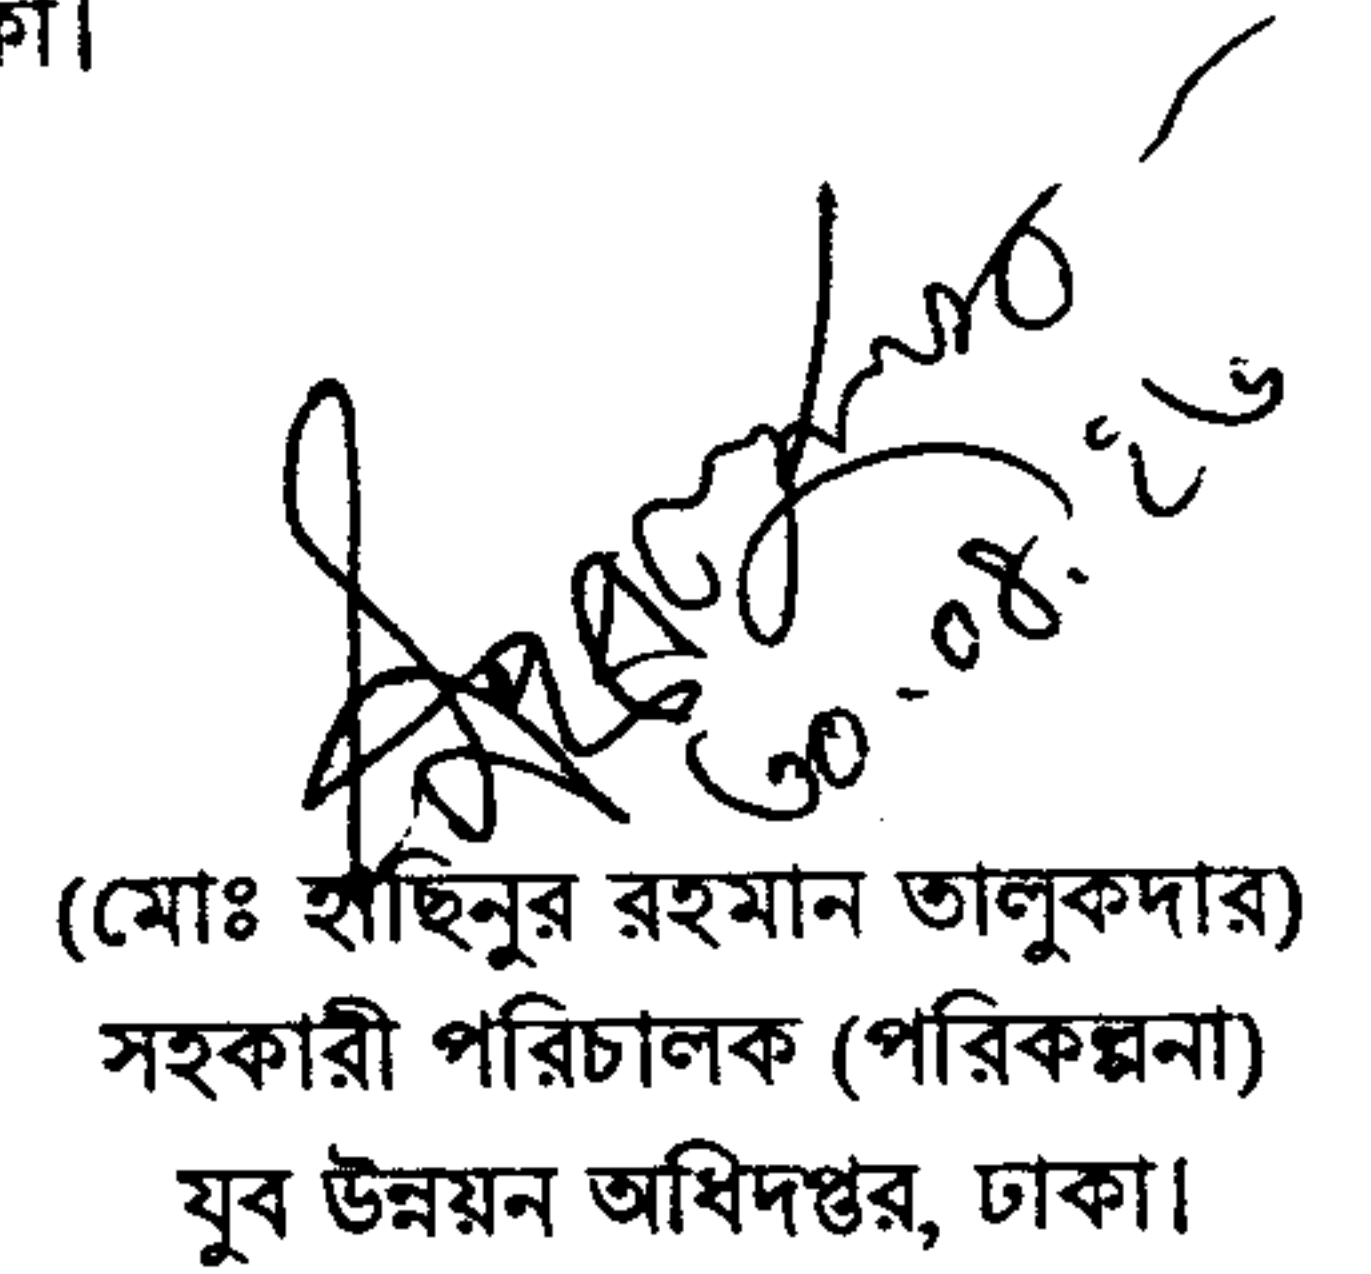 ৩০-০৪.
(মোঃ হাছিনুর রহমান তালুকদার)
সহকারী পরিচালক (পরিকল্পনা)
যুব উন্নয়ন অধিদপ্তর, ঢাকা।